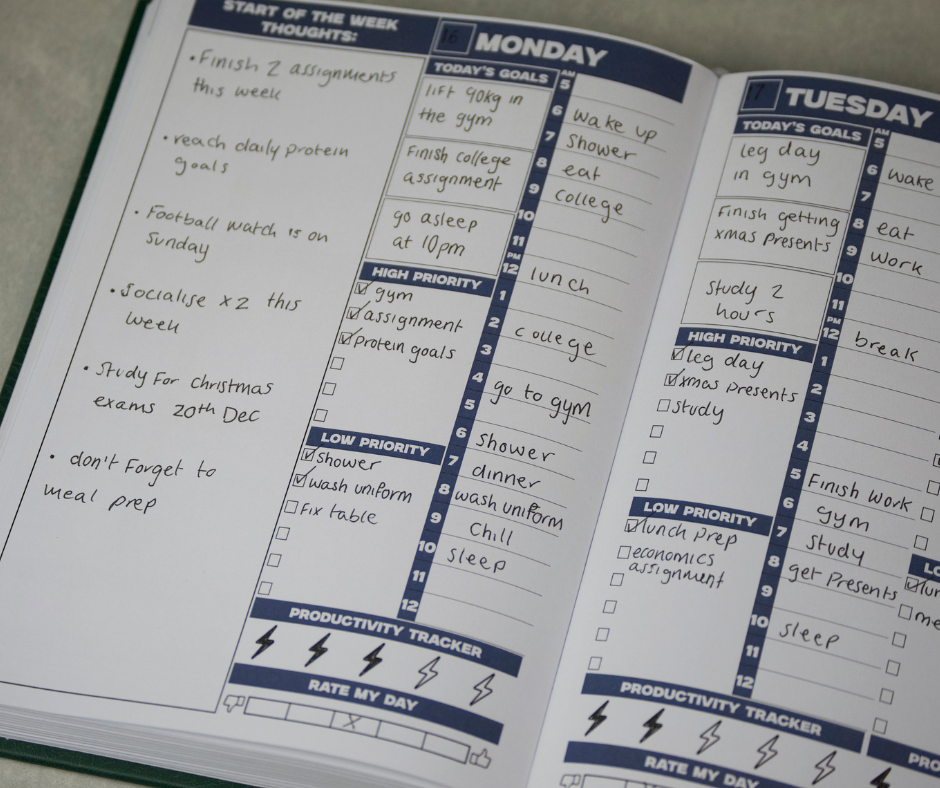 START OF THE WEEK
THOUGHTS:
• Finish 2 assignments
this week
• reach daily protein
goals
• Football watch is on
Sunday
• Socialise x2 this
week
• Study For Christmas
exams 20th Dec
• don't Forget to
meal prep
16 MONDAY
TODAY'S GOALS
lift 90kg in
the gym
Finish college
assignment
go asleep
at 10pm
HIGH PRIORITY
gym
assignment
Protein goals
LOW PRIORITY
Shower
wash uniform
Fix table
AM
5
6 wake up
7 Shower
8 eat
9 college
10
11
PM
12 lunch
1
2 college
3
4 go to gym
5
6 Shower
7 dinner
8 wash uniform
9 Chill
10 sleep
11
12
PRODUCTIVITY TRACKER
RATE MY DAY
X
17 TUESDAY
TODAY'S GOALS
leg day
in gym
Finish getting
xmas Presents
Study 2
hours
HIGH PRIORITY
leg day
xmas Presents
study
LOW PRIORITY
lunch prep
economics
assignment
AM
5
6 wake
7
8 eat
9 work
10
11
PM
12 break
1
2
3
4
5 Finish work
6 gym
7 Study
8 get Presents
9
10 sleep
11
12
PRODUCTIVITY TRACKER
RATE MY DAY
LO
lun
me
PRO